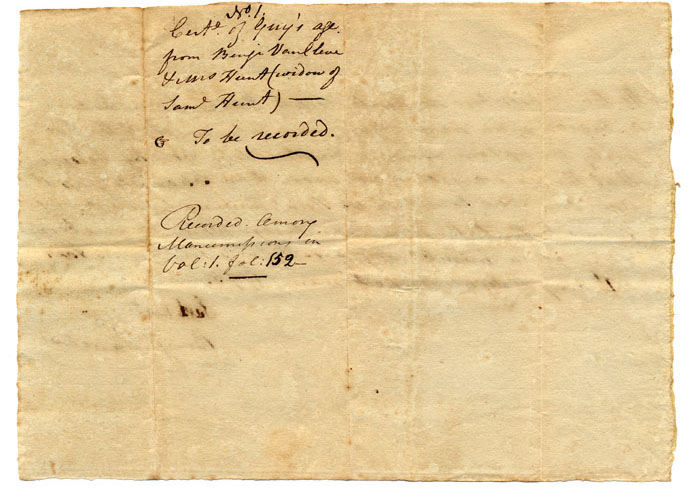 No. 1.
Certe. of Guy's age.
from Benjn. VanCleve
& Mrs Hunt (widow of
Saml. Hunt) —
& To be recorded.
Recorded Among
Manumissions in
Vol: 1. fol: 152